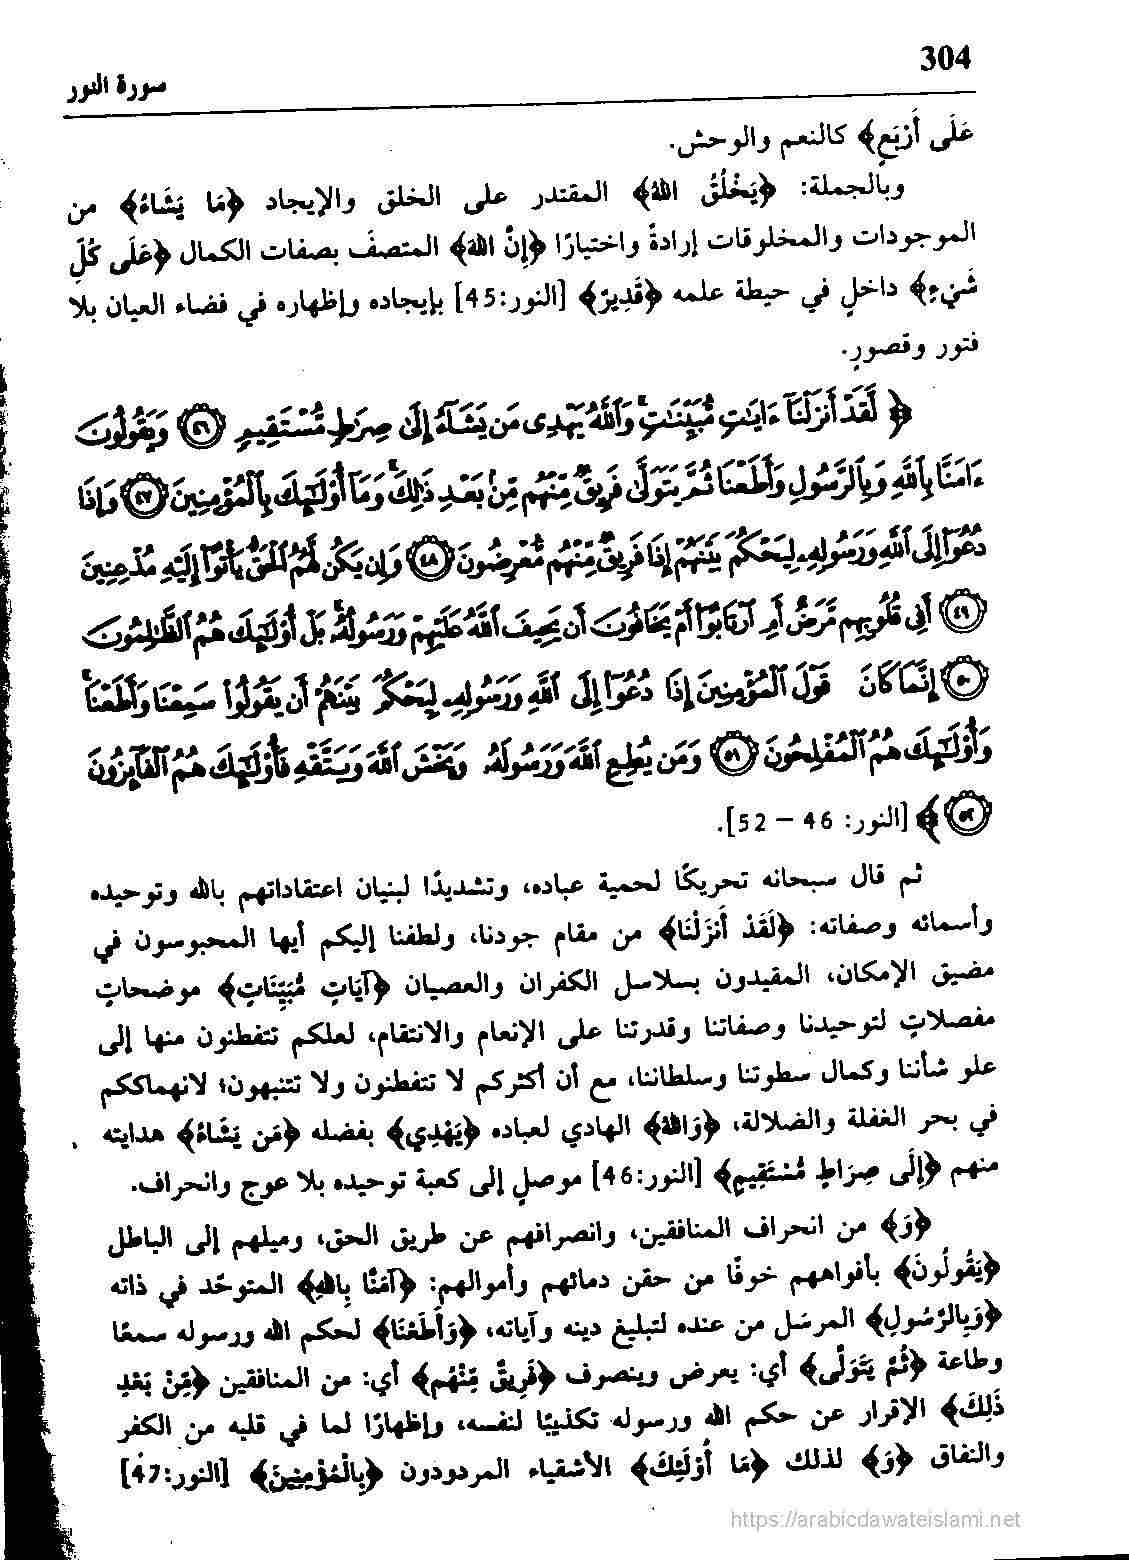 304
سورة النور
عَلَى أَرْبَعٍ﴾ كالنعم والوحش.
وبالجملة: ﴿يَخْلُقُ اللهُ﴾ المقتدر على الخلق والإيجاد ﴿مَا يَشَاءُ﴾ من
الموجودات والمخلوقات إرادةً واختيارًا ﴿إِنَّ اللهَ﴾ المتصفَ بصفات الكمال ﴿عَلَى كُلِّ
شَيْءٍ﴾ داخلٍ في حيطة علمه ﴿قَدِيرٌ﴾ [النور:45] بإيجاده وإظهاره في فضاء العيان بلا
فتور وقصورٍ.
﴿ لَّقَدْ أَنزَلْنَآ ءَايَٰتٍ مُّبَيِّنَٰتٍ ۚ وَٱللَّهُ يَهْدِى مَن يَشَآءُ إِلَىٰ صِرَٰطٍ مُّسْتَقِيمٍ ٤٦ وَيَقُولُونَ
ءَامَنَّا بِٱللَّهِ وَبِٱلرَّسُولِ وَأَطَعْنَا ثُمَّ يَتَوَلَّىٰ فَرِيقٌ مِّنْهُم مِّنۢ بَعْدِ ذَٰلِكَ ۚ وَمَآ أُو۟لَٰٓئِكَ بِٱلْمُؤْمِنِينَ ٤٧ وَإِذَا
دُعُوٓا۟ إِلَى ٱللَّهِ وَرَسُولِهِۦ لِيَحْكُمَ بَيْنَهُمْ إِذَا فَرِيقٌ مِّنْهُم مُّعْرِضُونَ ٤٨ وَإِن يَكُن لَّهُمُ ٱلْحَقُّ يَأْتُوٓا۟ إِلَيْهِ مُذْعِنِينَ
٤٩ أَفِى قُلُوبِهِم مَّرَضٌ أَمِ ٱرْتَابُوٓا۟ أَمْ يَخَافُونَ أَن يَحِيفَ ٱللَّهُ عَلَيْهِمْ وَرَسُولُهُۥ ۚ بَلْ أُو۟لَٰٓئِكَ هُمُ ٱلظَّٰلِمُونَ
٥٠ إِنَّمَا كَانَ قَوْلَ ٱلْمُؤْمِنِينَ إِذَا دُعُوٓا۟ إِلَى ٱللَّهِ وَرَسُولِهِۦ لِيَحْكُمَ بَيْنَهُمْ أَن يَقُولُوا۟ سَمِعْنَا وَأَطَعْنَا ۚ
وَأُو۟لَٰٓئِكَ هُمُ ٱلْمُفْلِحُونَ ٥١ وَمَن يُطِعِ ٱللَّهَ وَرَسُولَهُۥ وَيَخْشَ ٱللَّهَ وَيَتَّقْهِ فَأُو۟لَٰٓئِكَ هُمُ ٱلْفَآئِزُونَ
٥٢ ﴾ [النور: 46 – 52].
ثم قال سبحانه تحريكًا لحمية عباده، وتشديدًا لبنيان اعتقاداتهم بالله وتوحيده
وأسمائه وصفاته: ﴿لَقَدْ أَنزَلْنَا﴾ من مقام جودنا، ولطفنا إليكم أيها المحبوسون في
مضيق الإمكان، المقيدون بسلاسل الكفران والعصيان ﴿آيَاتٍ مُّبَيِّنَاتٍ﴾ موضحاتٍ
مفصلاتٍ لتوحيدنا وصفاتنا وقدرتنا على الإنعام والانتقام، لعلكم تتفطنون منها إلى
علو شأننا وكمال سطوتنا وسلطاننا، مع أن أكثركم لا تتفطنون ولا تتنبهون؛ لانهماككم
في بحر الغفلة والضلالة، ﴿وَاللهُ﴾ الهادي لعباده ﴿يَهْدِي﴾ بفضله ﴿مَن يَشَاءُ﴾ هدايته
منهم ﴿إِلَى صِرَاطٍ مُّسْتَقِيمٍ﴾ [النور:46] موصلٍ إلى كعبة توحيده بلا عوج وانحراف.
﴿وَ﴾ من انحراف المنافقين، وانصرافهم عن طريق الحق، وميلهم إلى الباطل
﴿يَقُولُونَ﴾ بأفواههم خوفًا من حقن دمائهم وأموالهم: ﴿آمَنَّا بِاللهِ﴾ المتوحّد في ذاته
﴿وَبِالرَّسُولِ﴾ المرسَل من عنده لتبليغ دينه وآياته، ﴿وَأَطَعْنَا﴾ لحكم الله ورسوله سمعًا
وطاعة ﴿ثُمَّ يَتَوَلَّى﴾ أي: يعرض وينصرف ﴿فَرِيقٌ مِّنْهُم﴾ أي: من المنافقين ﴿مِّنْ بَعْدِ
ذَلِكَ﴾ الإقرار عن حكم الله ورسوله تكذيبًا لنفسه، وإظهارًا لما في قلبه من الكفر
والنفاق ﴿وَ﴾ لذلك ﴿مَا أُوْلَئِكَ﴾ الأشقياء المردودون ﴿بِالْمُؤْمِنِينَ﴾ [النور:47]
https://arabicdawateislami.net